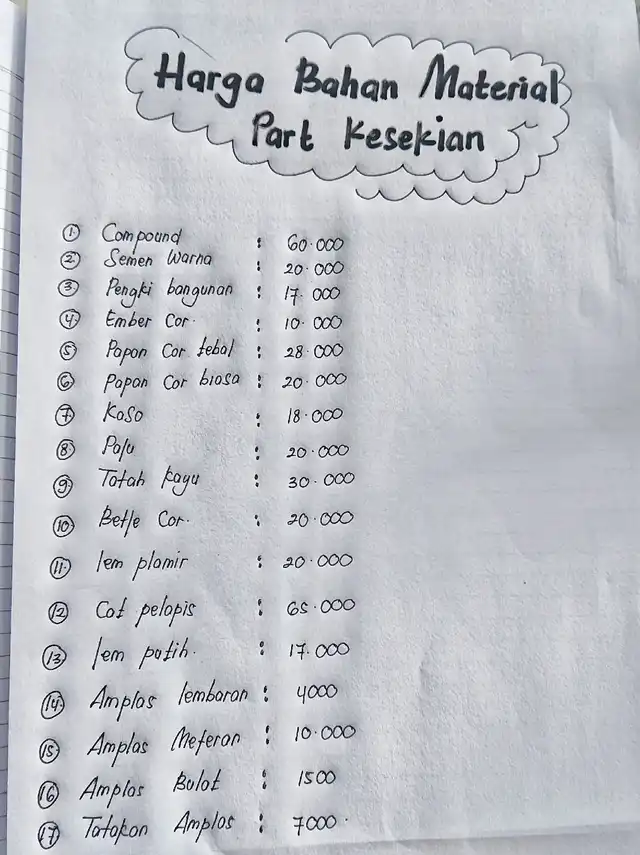 Harga Bahan Material
Part Kesekian
1. Compound : 60.000
2. Semen Warna : 20.000
3. Pengki bangunan : 17.000
4. Ember Cor. : 10.000
5. Papan Cor tebal : 28.000
6. Papan Cor biasa : 20.000
7. Kaso : 18.000
8. Palu : 20.000
9. Tatah kayu : 30.000
10. Betle Cor. : 20.000
11. lem plamir : 20.000
12. Cat pelapis : 65.000
13. lem putih. : 17.000
14. Amplas lembaran : 4000
15. Amplas Meteran : 10.000
16. Amplas Bulat : 1500
17. Tatakan Amplas : 7000.